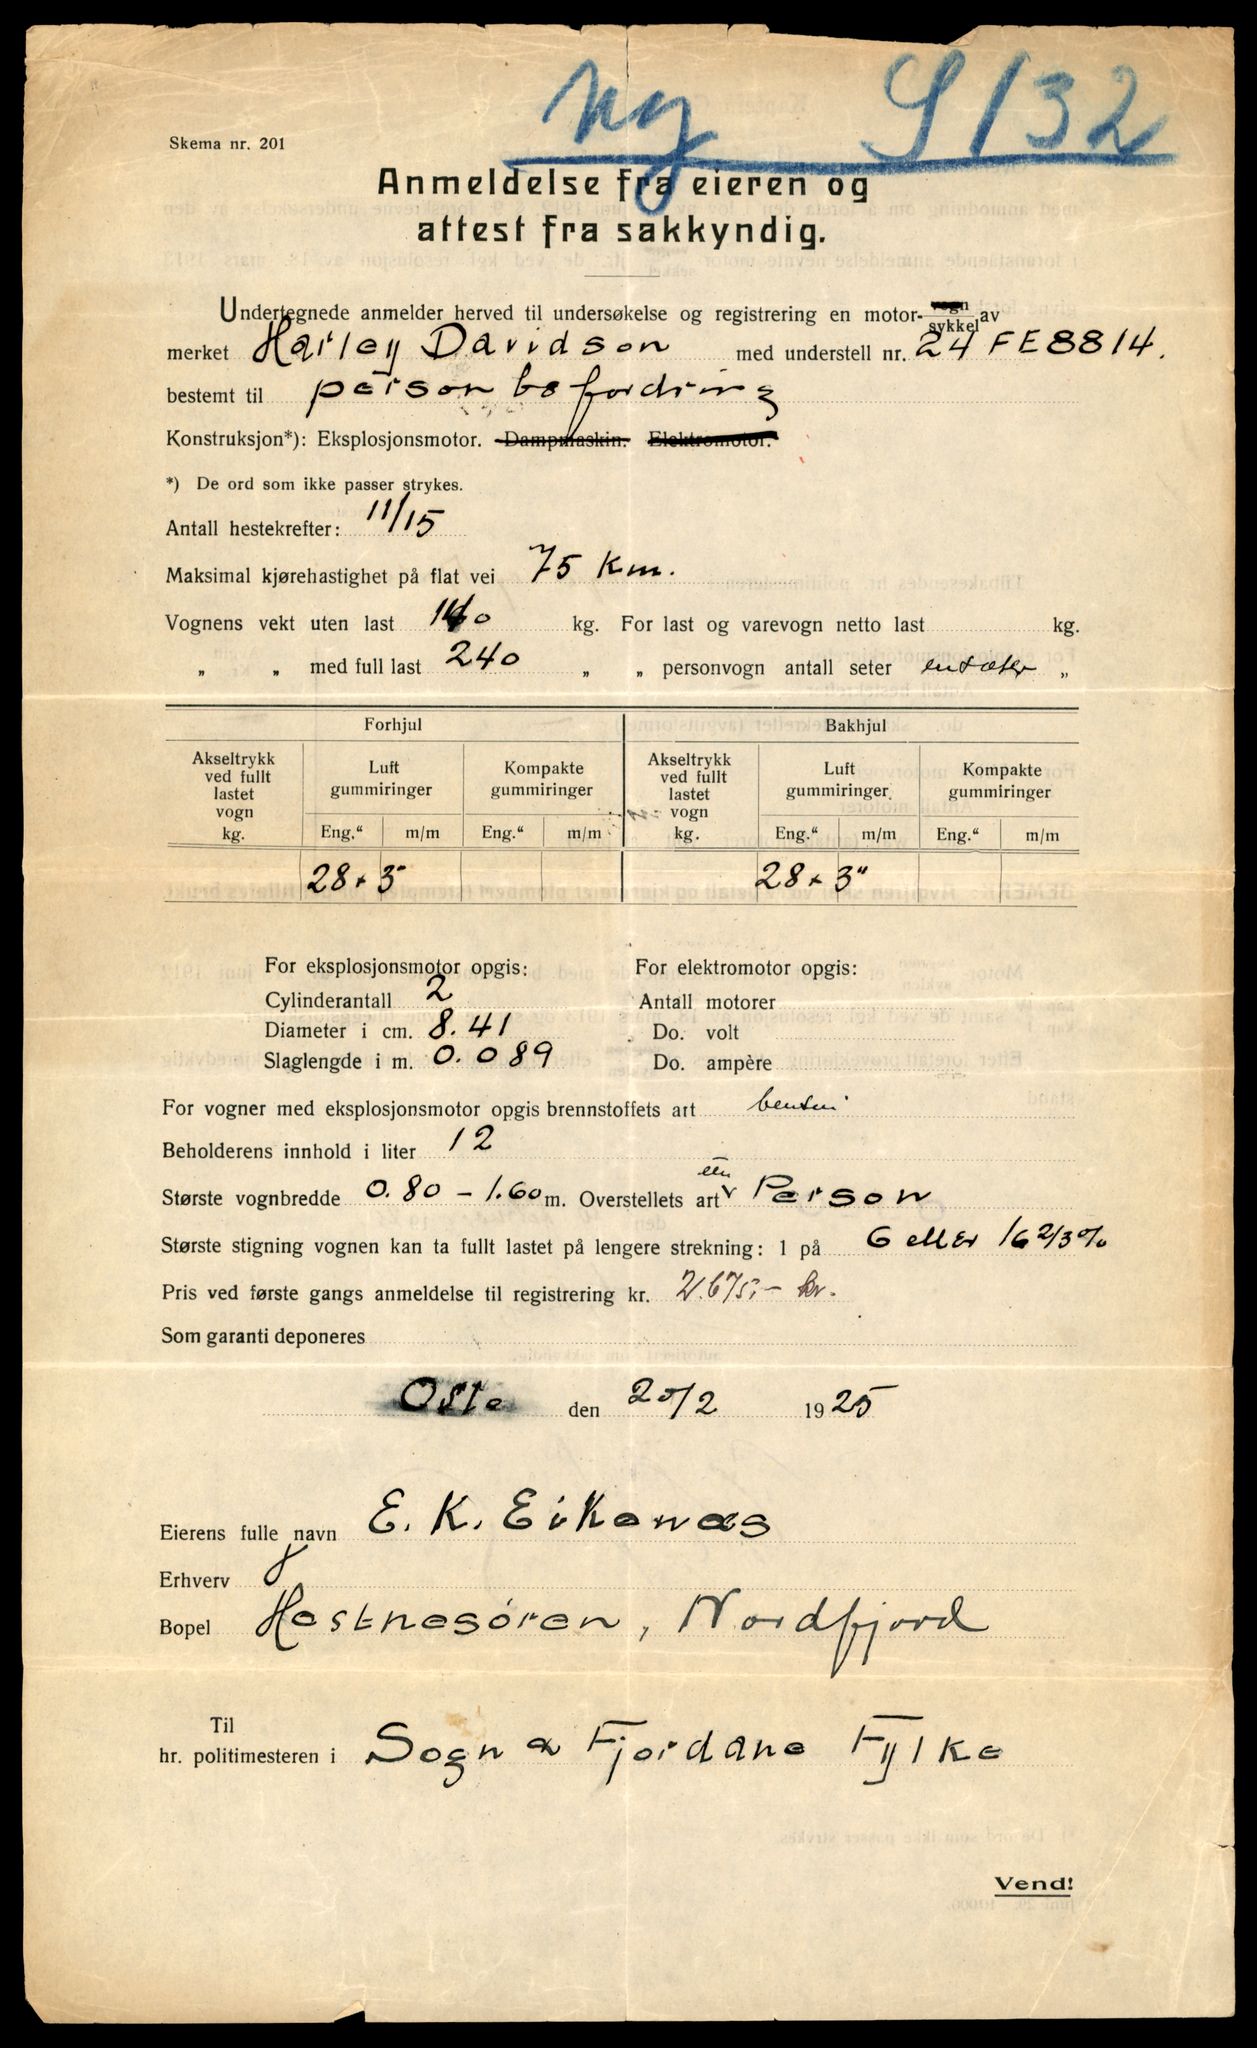 ny S 132
Skema nr. 201
Anmeldelse fra eieren og
attest fra sakkyndig.
Undertegnede anmelder herved til undersøkelse og registrering en motor-vogn/sykkel av
merket Harley Davidson med understell nr. 24 FE8814.
bestemt til personbefordring
Konstruksjon*): Eksplosjonsmotor. Dampmaskin. Elektromotor.
*) De ord som ikke passer strykes.
Antall hestekrefter: 11/15
Maksimal kjørehastighet på flat vei 75 Km.
Vognens vekt uten last 140 kg. For last og varevogn netto last kg.
„ „ med full last 240 „ „ personvogn antall seter „
Forhjul Bakhjul
Akseltrykk ved fullt lastet vogn kg. Luft gummiringer Kompakte gummiringer Akseltrykk ved fullt lastet vogn kg. Luft gummiringer Kompakte gummiringer
Eng." m/m Eng." m/m Eng." m/m Eng." m/m
28 x 3" 28 x 3"
For eksplosjonsmotor opgis: For elektromotor opgis:
Cylinderantall 2 Antall motorer
Diameter i cm. 8.41 Do. volt
Slaglengde i m. 0.089 Do. ampère
For vogner med eksplosjonsmotor opgis brennstoffets art bensin
Beholderens innhold i liter 12
Største vognbredde 0.80 - 1.60 m. Overstellets art een Person
Største stigning vognen kan ta fullt lastet på lengere strekning: 1 på 6 eller 16 2/3 %
Pris ved første gangs anmeldelse til registrering kr. 2.675,- kr.
Som garanti deponeres
Oslo den 20/2 1925
Eierens fulle navn E. K. Eikenæs
Erhverv
Bopel Hestnesøren, Nordfjord
Til
hr. politimesteren i Sogn & Fjordane Fylke
Vend!